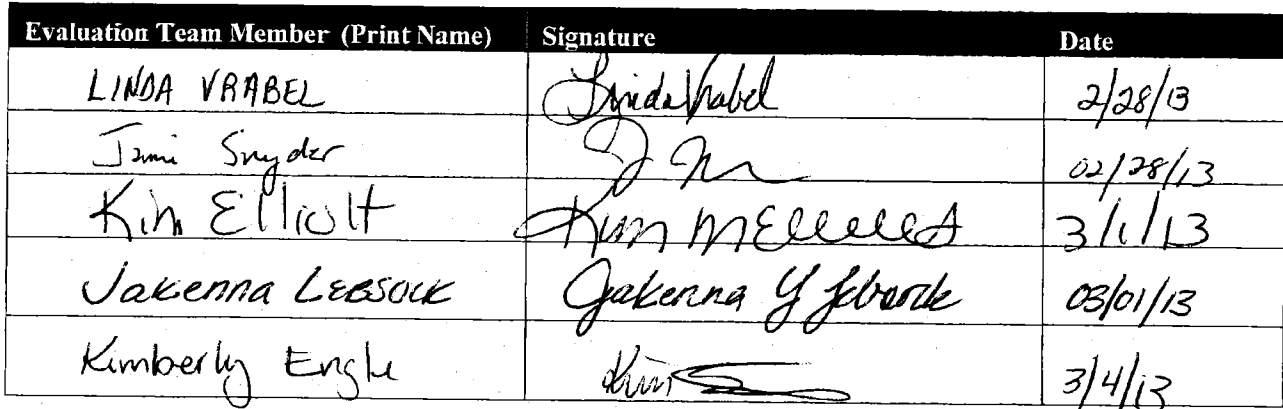 Evaluation Team Member (Print Name) Signature Date
LINDA VRABEL Linda Vrabel 2/28/13
Jami Snyder 02/28/13
Kim Elliott Kim M Elliott 3/1/13
Jakenna Lebsock Jakenna Y Lebsock 03/01/13
Kimberly Engle Kim 3/4/13